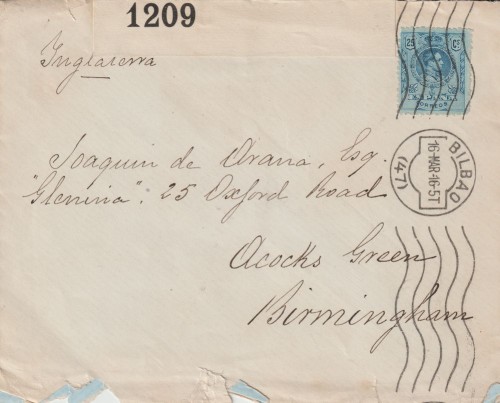 1209
Inglaterra
25 Cs
CORREOS
BILBAO
16·MAR·16·5T
(47)
Joaquin de Arana, Esq.
"Glenina". 25 Oxford Road
Acocks Green
Birmingham